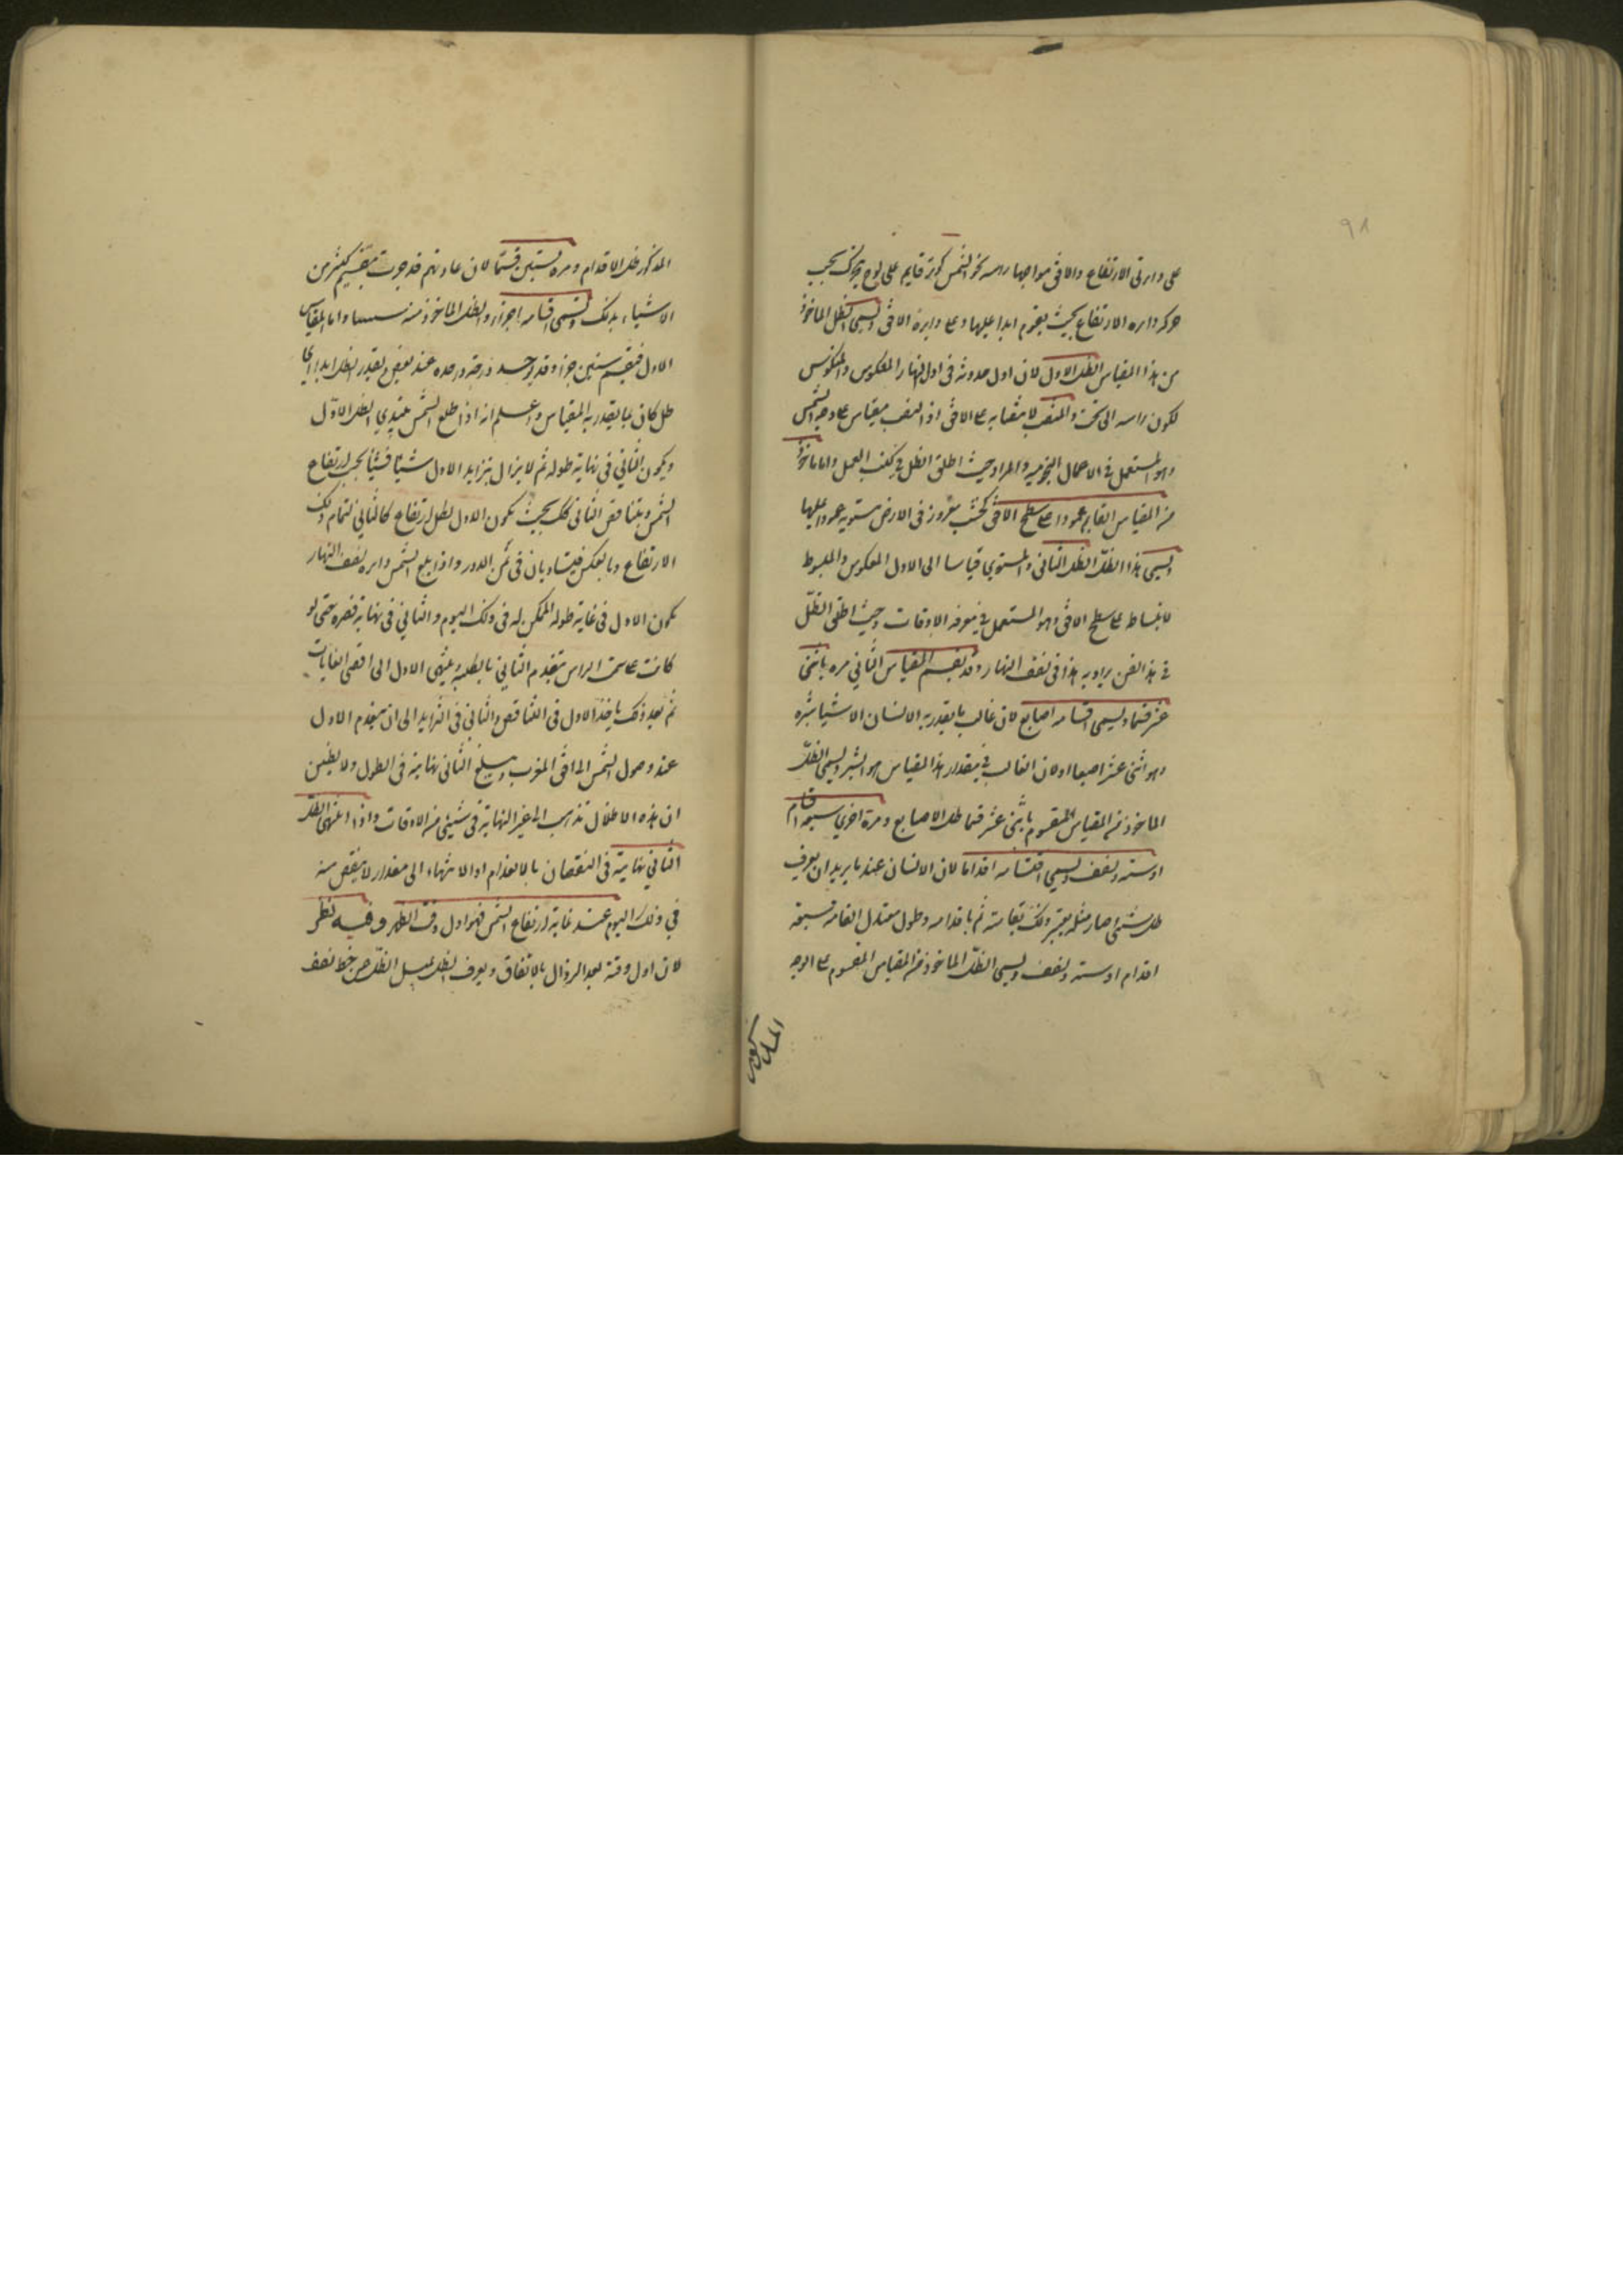 ٩٨
على دايرتى الارتفاع والافق مواجها راسه نحو الشمس كوتد قايم على لوح يتحرك بحسب
حركه دايره الارتفاع بحيث يقوم ابدا عليها وعلى دايرة الافق ويسمى الظل الماخوذ
من هذا المقياس الظل الاول لان اول حدوثه فى اول النهار والمعكوس والمنكوس
لكون راسه الى تحت والمنتصب لانتصابه على الافق اذ النصب مقياس على وجه الشمس
وهو المستعمل فى الاعمال النجوميه والمراد حيث اطلق الظل فى كتب العمل واما ماخوذ
من المقياس القايم عمودا على سطح الافق كخشب مغروز فى الارض مستويه عمودا عليها
ويسمى هذا الظل الظل الثانى والمستوي قياسا الى الاول المعكوس والمبسوط
لانبساطه على سطح الافق وهو المستعمل فى معرفه الاوقات وحيث اطلق الظل
فى هذا الفن يراد به هذا فى نصف النهار وقد يقسم المقياس الثاني مره باثنى
عشر قسما ويسمى اقسامه اصابع لان غالب ما يقدر به الانسان الاشيا شبره
وهو اثنى عشر اصبعا او لان الغالب فى مقدار هذا المقياس هو الشبر ويسمى الظل
الماخوذ من المقياس المقسوم باثنى عشر قسما ظل الاصابع ومرة اخري سبعه اقسام
او سته ونصف ويسمى اقسامه اقداما لان الانسان عند ما يريد ان يعرف
ظل شئ صار مثله يعتبر ذلك بقامته ثم باقدامه وطول معتدل القامه سبعة
اقدام او سته ونصف ويسمى الظل الماخوذ من المقياس المقسوم على الوجه
المذكور ظل الاقدام ومره بستين قسما لان عادتهم قد جرت بتقسيم كثير من
الاشياء بذلك وتسمى اقسامه اجزاء والظل الماخوذ منه واما المقياس
الاول فيقسم ستين جزا وقد درجه واحده عند بعض ويقدر الظل ابدا اي
ظل كان بما يقدر به المقياس واعلم انه اذا طلع الشمس يبتدي الظل الاول
ويكون الثاني فى نهاية طوله ثم لا يزال يتزايد الاول شيئا فشيئا بحسب ارتفاع
الشمس ويتناقص الثانى كذلك بحيث يكون الاول لظل ارتفاع كالثاني لتمام ذلك
الارتفاع وبالعكس فيتساويان فى ثمن الدور واذا بلغ الشمس دايره نصف النهار
يكون الاول فى غاية طوله الممكن له فى ذلك اليوم والثاني فى نهاية قصره حتى لو
كانت على سمت الراس ينعدم الثاني بالكليه وينتهى الاول الى اقصى الغايات
ثم بعد ذلك ياخذ الاول فى التناقص والثاني فى التزايد الى ان ينعدم الاول
عند وصول الشمس الى افق المغرب ويبلغ الثانى نهايته فى الطول ولا يظنن
ان هذه الاظلال تذهب الى غير النهاية فى شئ من الاوقات واذا انتهى الظل
الثاني نهايته فى النقصان بالانعدام او الانتهاء الى مقدار لا ينقص منه
في ذلك اليوم عند غاية ارتفاع الشمس فهو اول وقت الظهر وفيه نظر
لان اول وقته بعد الزوال بالاتفاق ويعرف الظل بميل الظل عن خط نصف